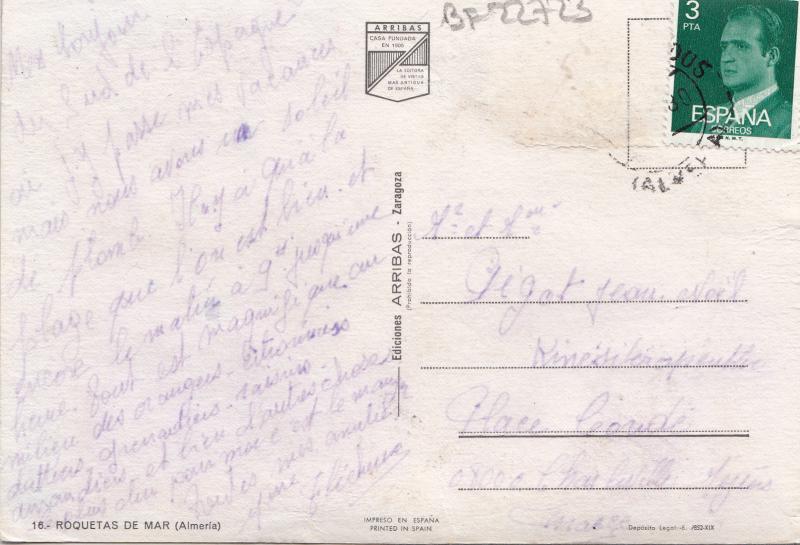 BF 22723
ARRIBAS
CASA FUNDADA
EN 1905
LA EDITORA
DE VISTAS
MAS ANTIGUA
DE ESPAÑA
3
PTA
ESPAÑA
CORREOS
F.N.M.T.
Mon bonjour
du Sud de l'Espagne
où j'y passe mes vacances
mais nous avons un soleil
de plomb. Il n'y a qu'à la
plage que l'on est bien. et
encore le matin à 9h jusqu'à une
heure. Tout est magnifique au
milieu des orangers citronniers
dattiers grenadiers
et bien d'autres choses
pour moi c'est le
Toutes mes amitiés
Ediciones ARRIBAS - Zaragoza
(Prohibida la reproducción)
Mr et Mme
Pigot Jean-Noël
Kinésithérapeute
Place Condé
Charleville Mézières
16.- ROQUETAS DE MAR (Almería)
IMPRESO EN ESPAÑA
PRINTED IN SPAIN
Depósito Legal